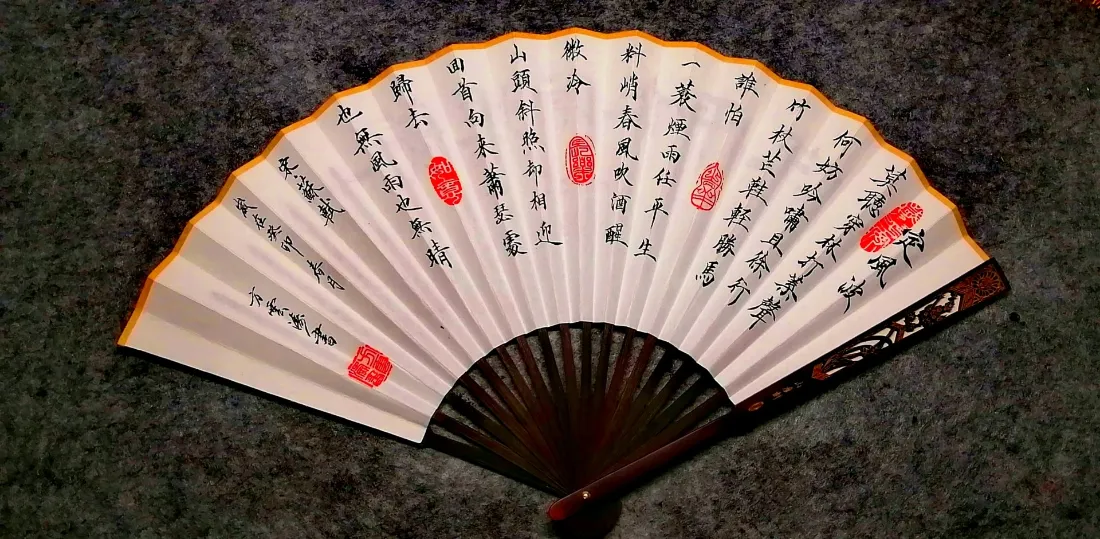 定風波
莫聽穿林打葉聲
何妨吟嘯且徐行
竹杖芒鞋輕勝馬
誰怕
一蓑煙雨任平生
料峭春風吹酒醒
微冷
山頭斜照却相迎
回首向來蕭瑟處
歸去
也無風雨也無晴
宋蘇軾
歲在癸卯春月
方雲濤書